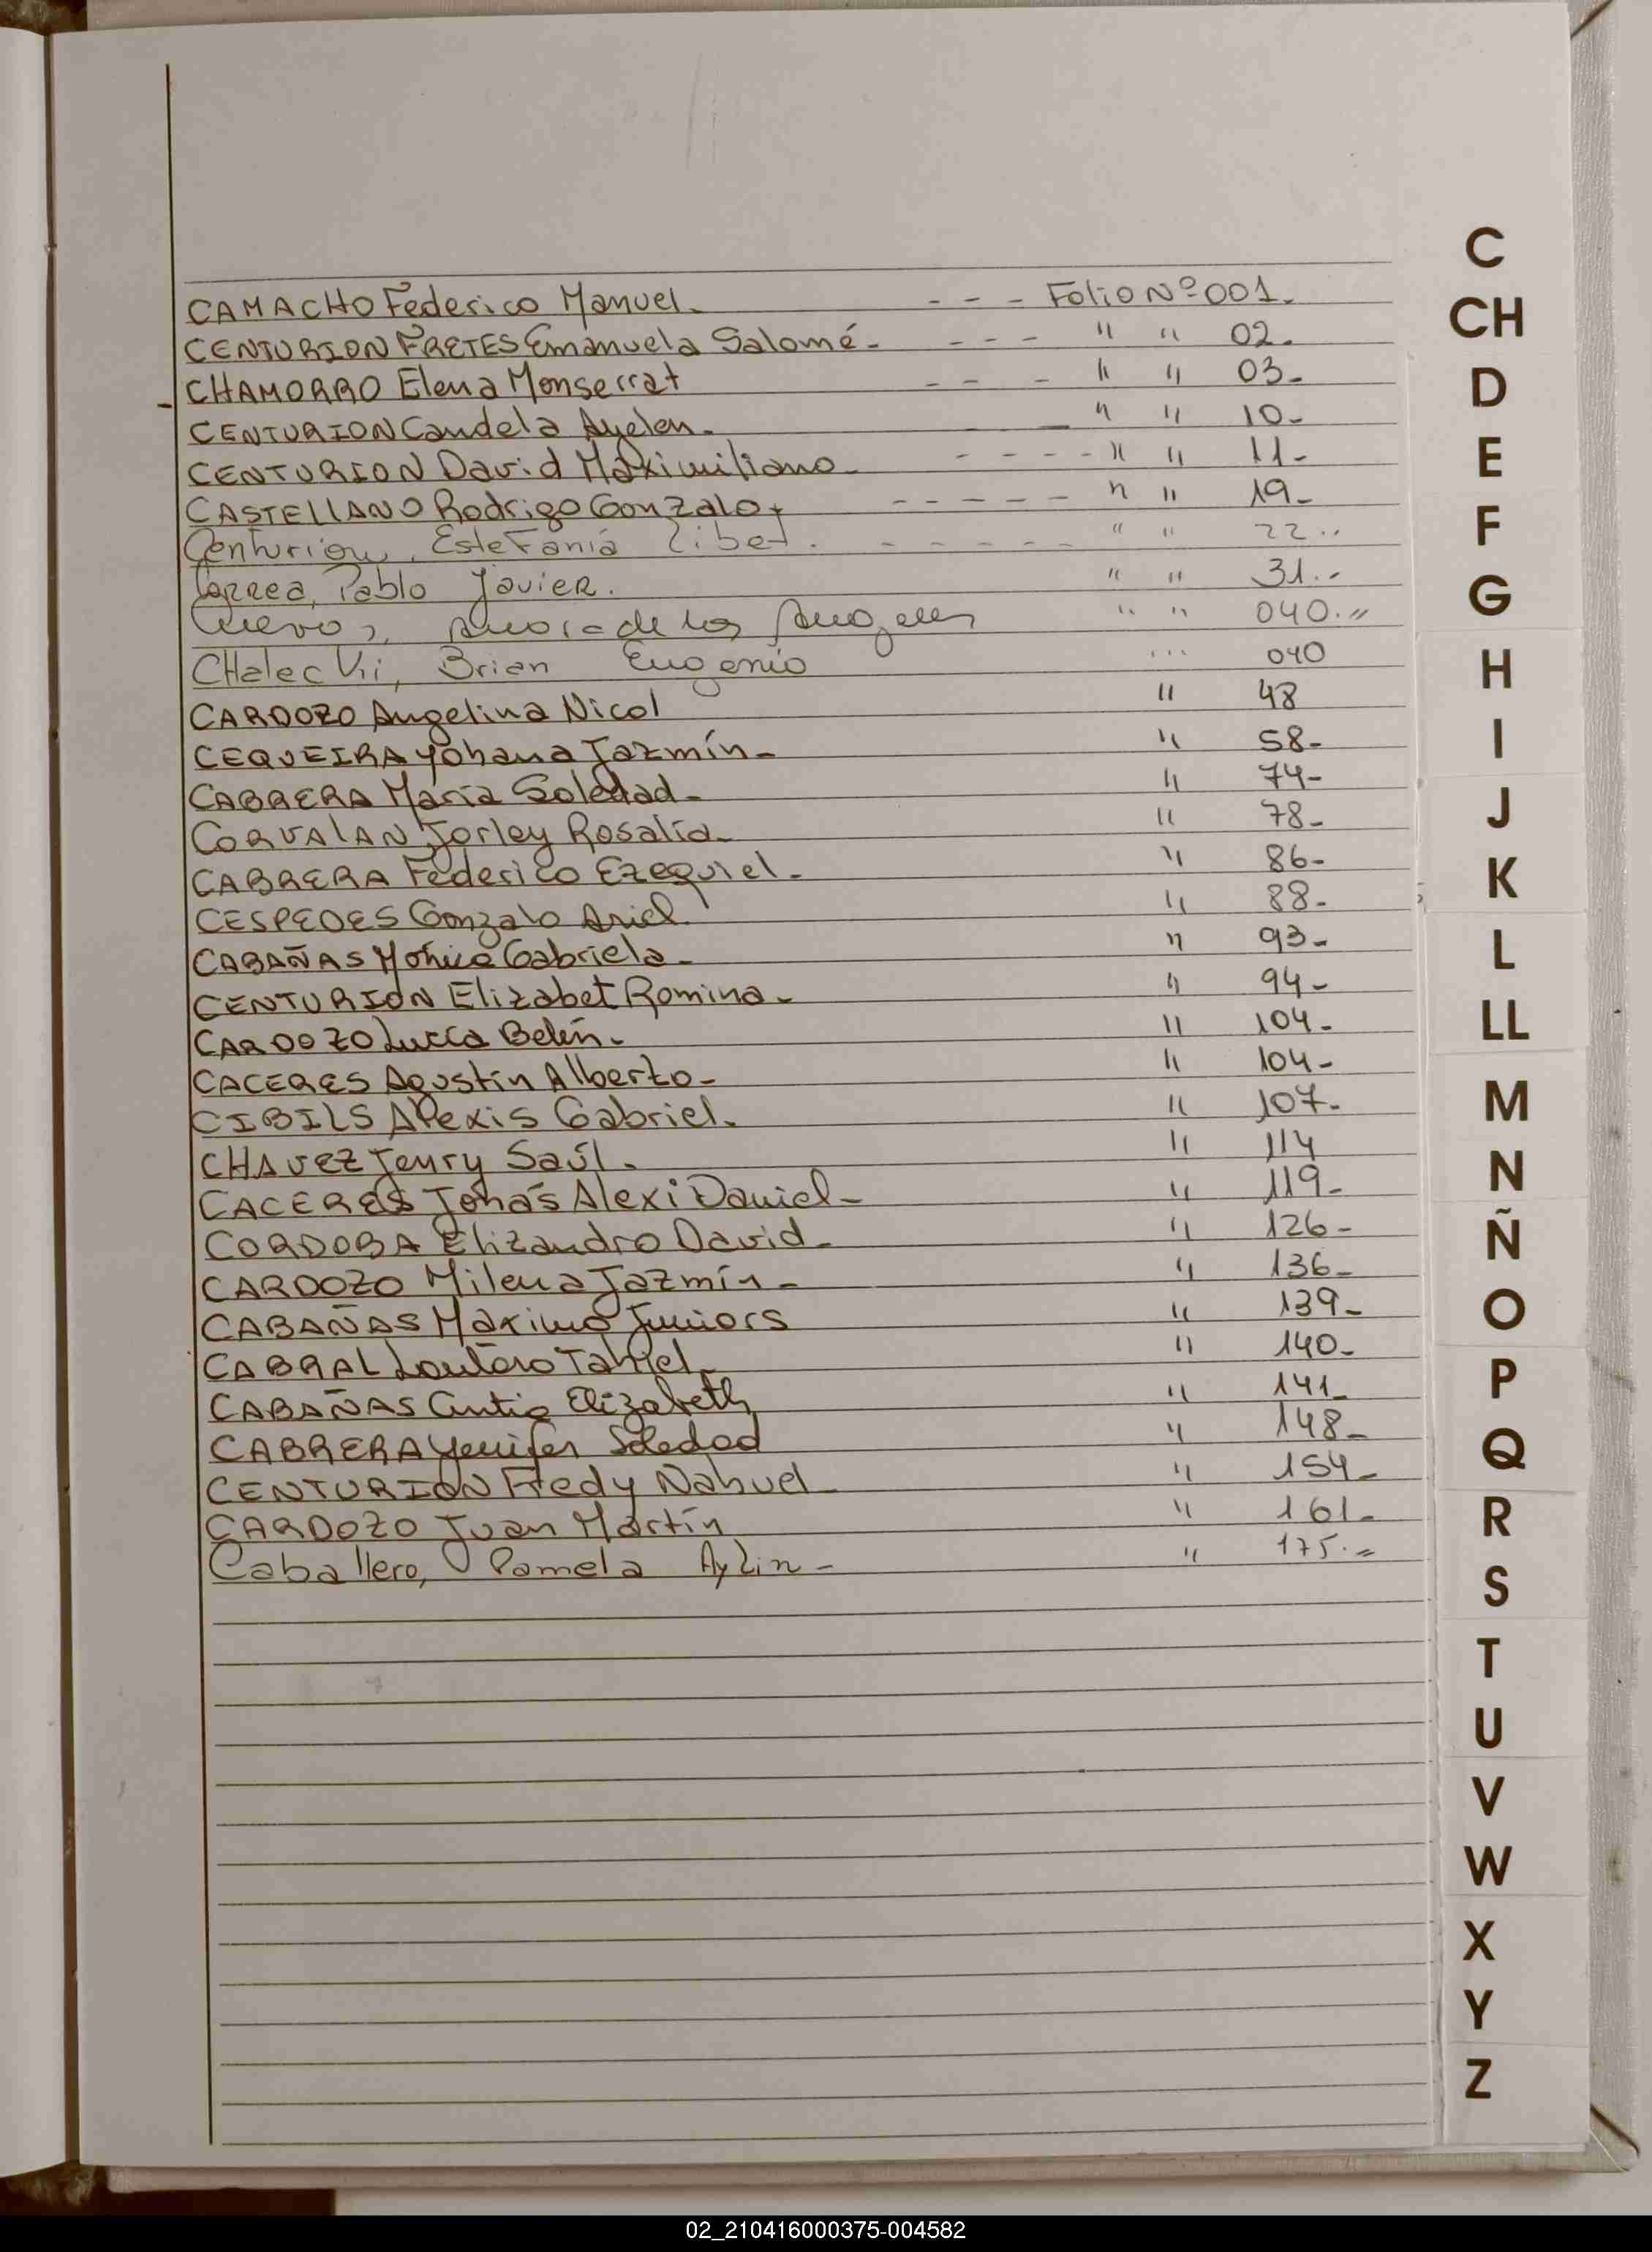 CAMACHO Federico Manuel. - - - Folio Nº 001.
CENTURION FRETES Emanuela Salomé - - - - " " 02.
- CHAMORRO Elena Monserrat - - - " " 03-
CENTURION Candela Ayelen. — " " 10-
CENTURION David Maximiliano - - - - - " " 11-
CASTELLANO Rodrigo Gonzalo, - - - - - " " 19-
Centurion, Estefania Libet. - - - - - " " 22..
Correa, Pablo Javier. " " 31.-
de los " " 040."
CHalecVii, Brian Eugenio ... 040
CARDOZO Angelina Nicol " 48
CEQUEIRA Yohana Jazmín- " 58-
CABRERA María Soledad- " 74-
CORVALAN Jorley Rosalía- " 78-
CABRERA Federico Ezequiel- " 86-
CESPEDES Gonzalo Ariel " 88-
CABAÑAS Mónica Gabriela- " 93-
CENTURION Elizabet Romina- " 94-
CARDOZO Lucía Belén- " 104-
CACERES Agustín Alberto- " 104-
CIBILS Alexis Gabriel. " 107-
CHAVEZ Jenry Saúl. " 114
CACERES Jonás Alexi Daniel- " 119-
CORDOBA Elizandro David- " 126-
CARDOZO Milena Jazmín- " 136-
CABAÑAS Maximo Juniors " 139-
CABRAL Lautaro Tahiel " 140-
CABAÑAS Cintia Elizabeth " 141-
CABRERA Yenifer Soledad " 148-
CENTURION Fredy Nahuel- " 154-
CARDOZO Juan Martín " 161-
Caballero, Pamela Aylin- " 175.=
C
CH
D
E
F
G
H
I
J
K
L
LL
M
N
Ñ
O
P
Q
R
S
T
U
V
W
X
Y
Z
02_210416000375-004582